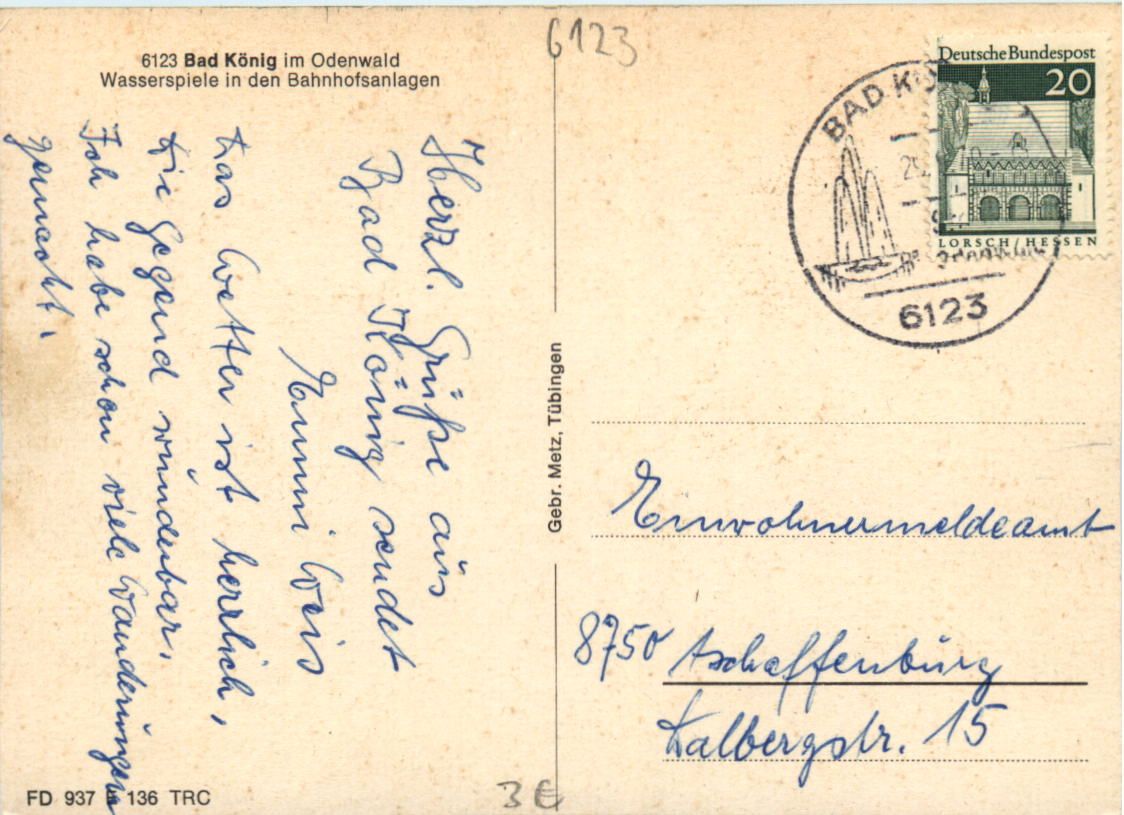 6123 Bad König im Odenwald
Wasserspiele in den Bahnhofsanlagen
Herzl. Grüße aus
Bad König sendet
Emmi Weis
Das Wetter ist herrlich,
die Gegend wunderbar.
Ich habe schon viele Wanderungen
gemacht.
FD 937 136 TRC
Gebr. Metz, Tübingen
6123
3 €
Deutsche Bundespost
20
LORSCH/HESSEN
BAD KÖ
6123
Einwohnermeldeamt
8750 Aschaffenburg
Dalbergstr. 15